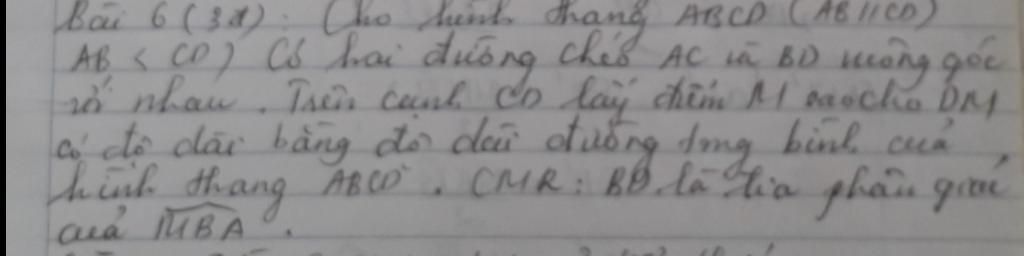 Bài 6 (3đ): Cho hình thang ABCD (AB//CD)
AB < CD) Có hai đường chéo AC và BD vuông góc
với nhau. Trên cạnh CD lấy điểm M sao cho DM
có độ dài bằng độ dài đường trung bình của
hình thang ABCD. CMR: BD là tia phân giác
của MBA.